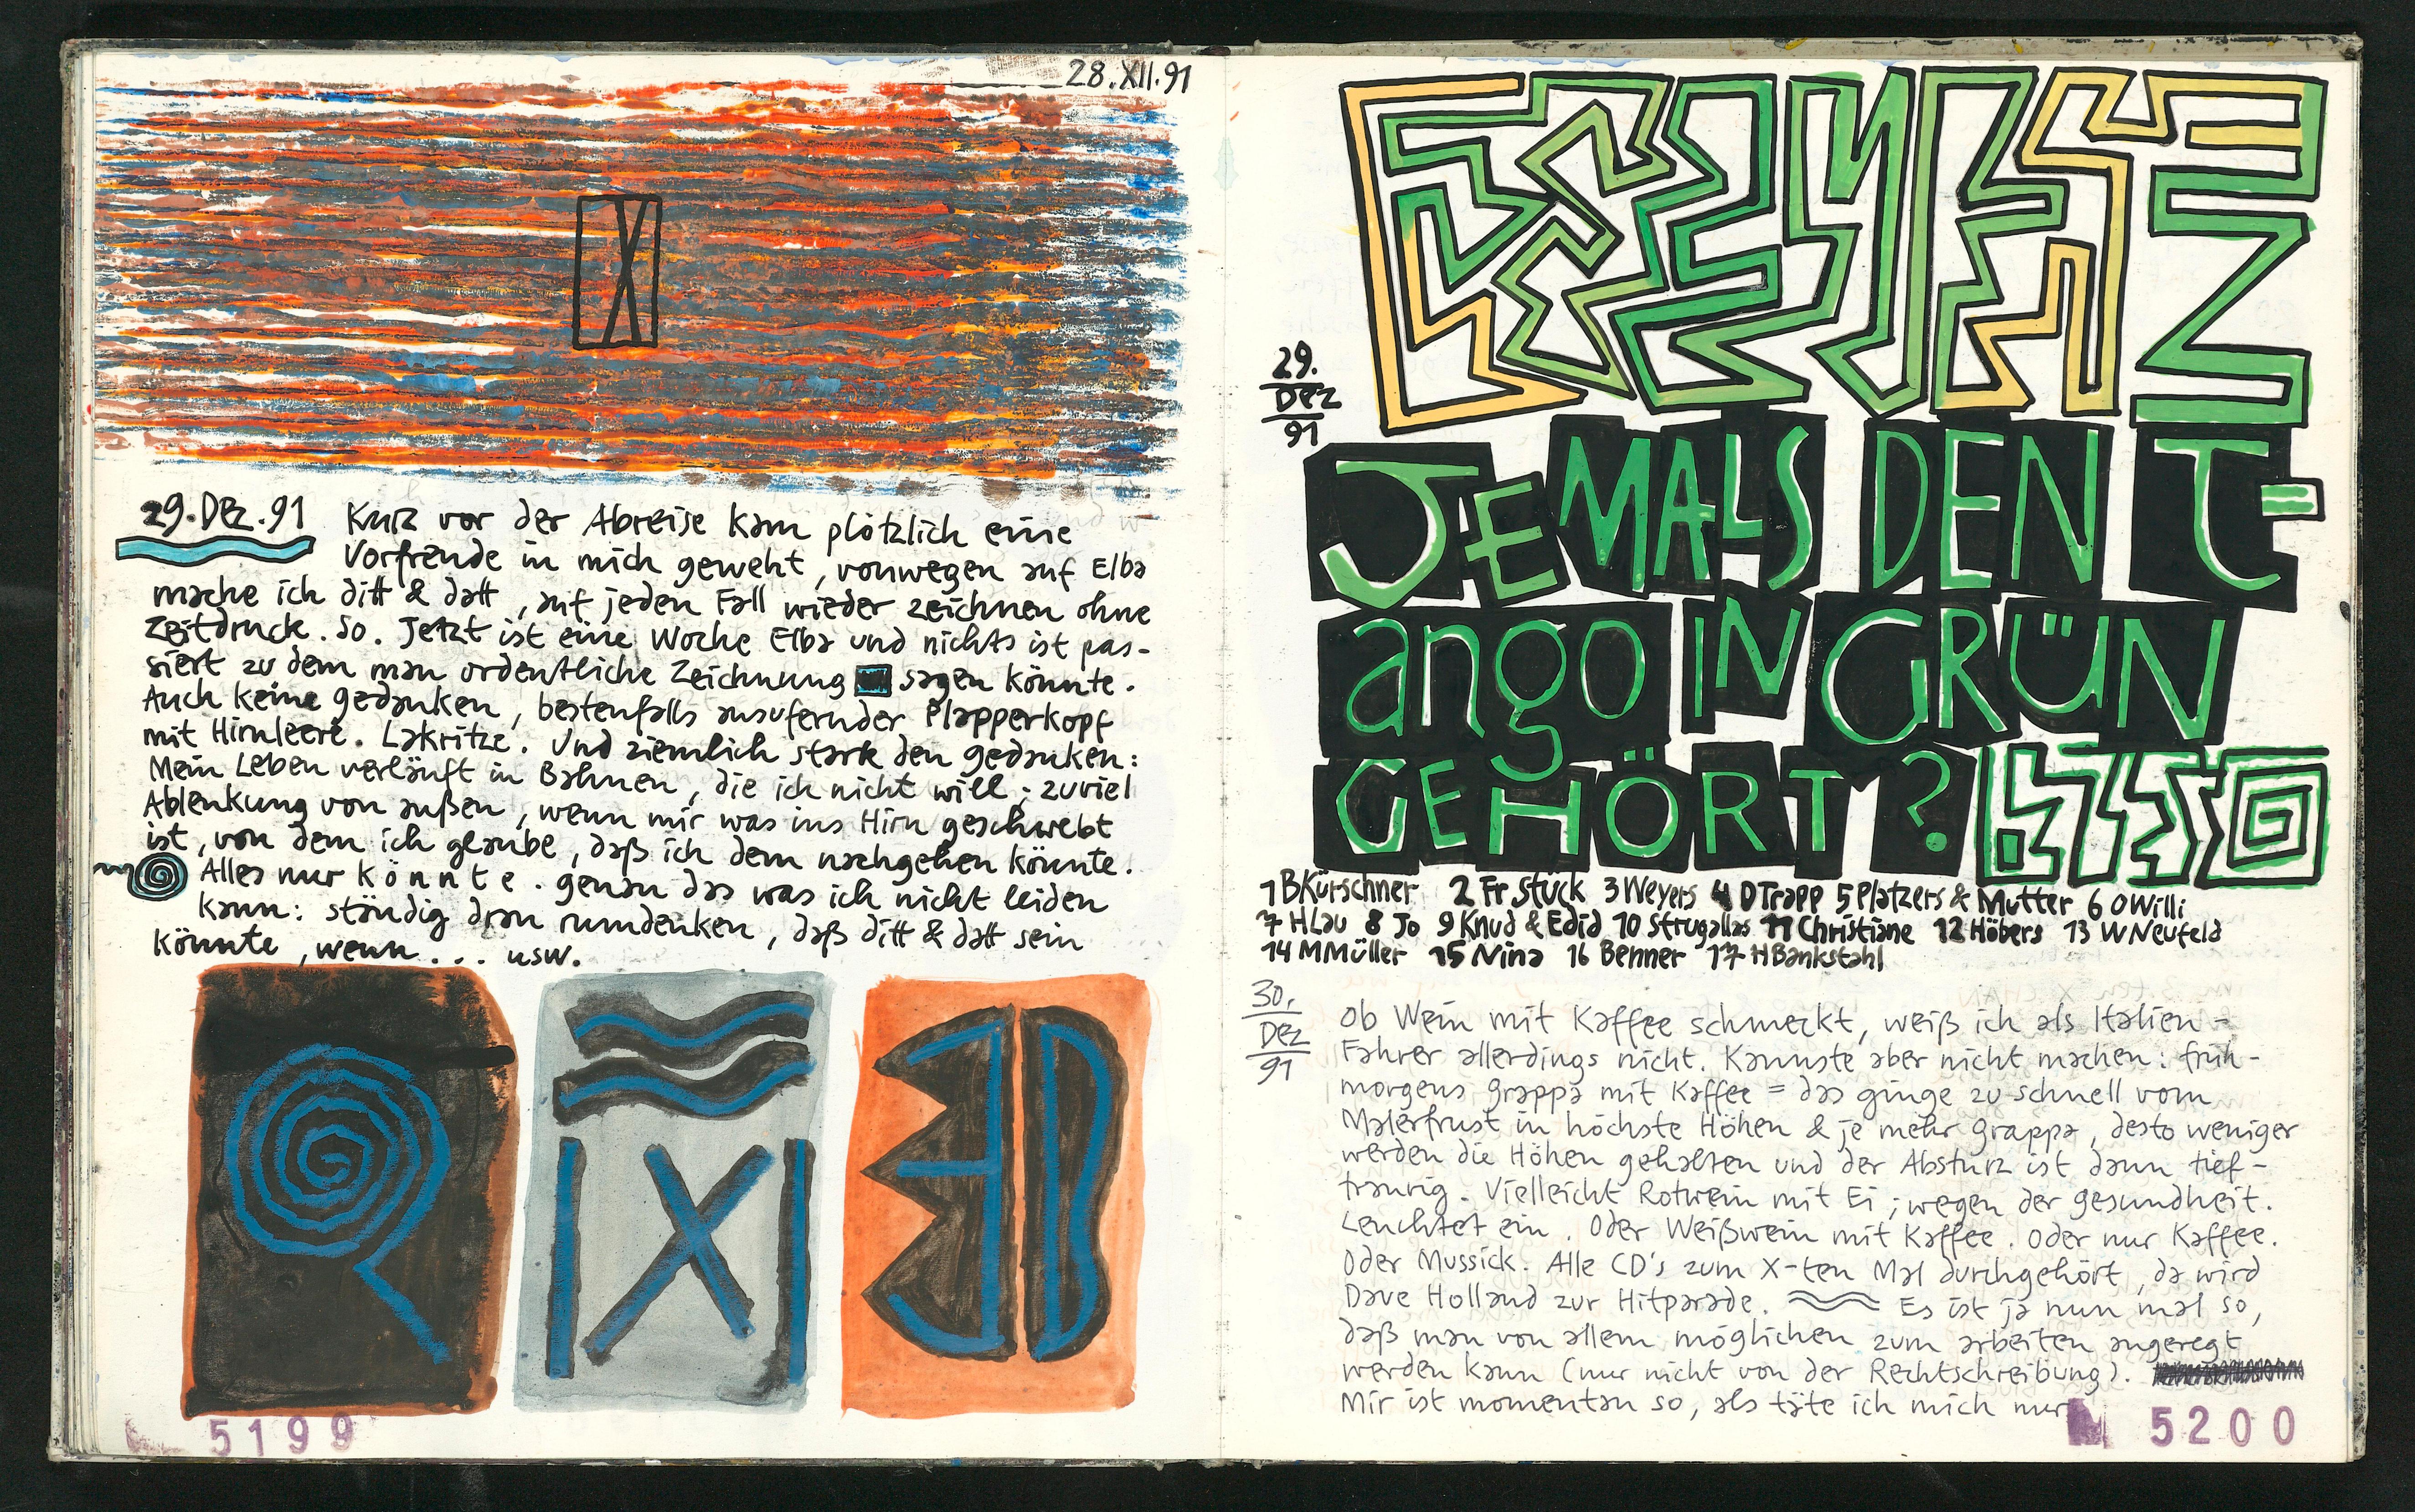 28.XII.91
29.Dez.91 Kurz vor der Abreise kam plötzlich eine
Vorfreude in mich geweht, vonwegen auf Elba
mache ich ditt & datt, auf jeden Fall wieder zeichnen ohne
Zeitdruck. So. Jetzt ist eine Woche Elba und nichts ist pas-
siert zu dem man ordentliche Zeichnung sagen könnte.
Auch keine gedanken, bestenfalls ausufernder Plapperkopf
mit Hirnleere. Lakritze. Und ziemlich stark den gedanken:
Mein Leben verläuft in Bahnen, die ich nicht will; zuviel
Ablenkung von außen, wenn mir was ins Hirn geschwebt
ist, von dem ich glaube, daß ich dem nachgehen könnte.
Alles nur könnte. genau das was ich nicht leiden
kann: ständig dran rumdenken, daß ditt & datt sein
könnte, wenn... usw.
5199
29.
Dez
91
JEMALS DEN T-
ango IN GRÜN
GEHÖRT?
1 BKürschner 2 Fr Stück 3 Weyers 4 D Trapp 5 Platzers & Mutter 6 O Willi
7 HLau 8 Jo 9 Knud & Edid 10 Strugallas 11 Christiane 12 Höbers 13 W Neufeld
14 MMüller 15 Nina 16 Benner 17 H Bankstahl
30.
Dez
91
Ob Wein mit Kaffee schmeckt, weiß ich als Italien-
Fahrer allerdings nicht. Kannste aber nicht machen: früh-
morgens grappa mit Kaffee = das ginge zu schnell vom
Malerfrust in höchste Höhen & je mehr grappa, desto weniger
werden die Höhen gehalten und der Absturz ist dann tief-
traurig. Vielleicht Rotwein mit Ei; wegen der gesundheit.
Leuchtet ein. Oder Weißwein mit Kaffee. Oder nur Kaffee.
Oder Mussick. Alle CD's zum X-ten Mal durchgehört, da wird
Dave Holland zur Hitparade. Es ist ja nun mal so,
daß man von allem möglichen zum arbeiten angeregt
werden kann (nur nicht von der Rechtschreibung).
Mir ist momentan so, als täte ich mich nur
5200